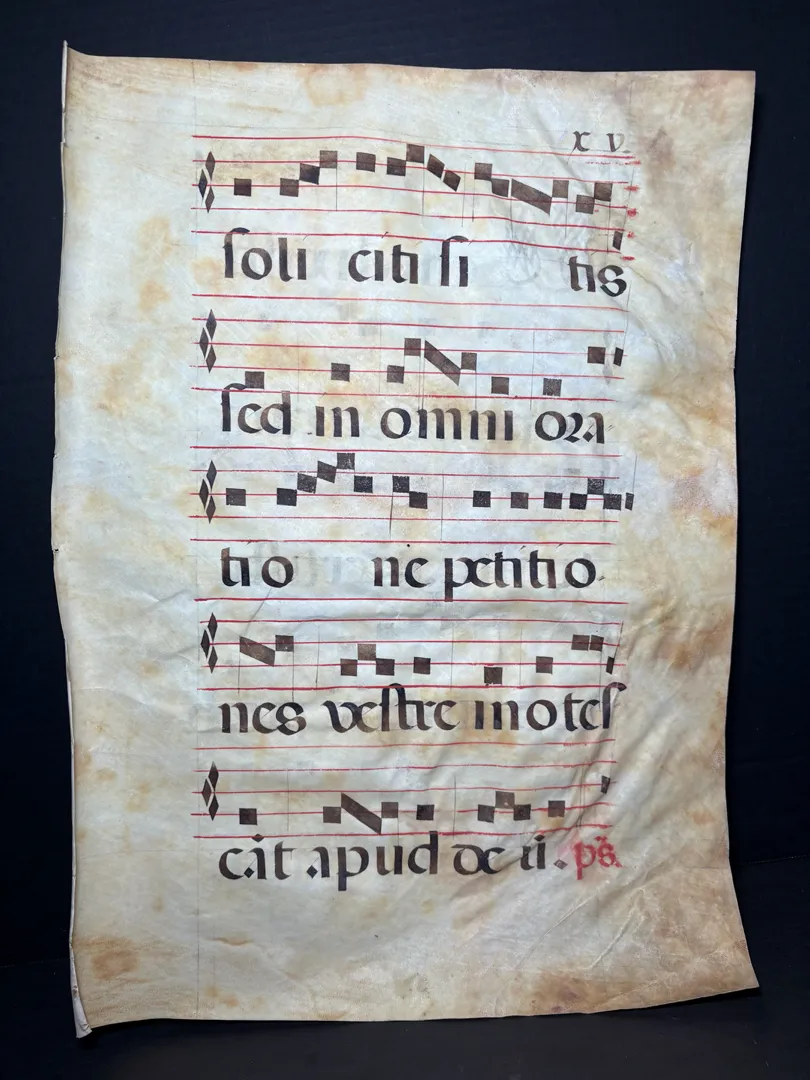 x v.
soli citi si tis
sed in omni ora
tio ne petitio
nes vestre inotes
cat apud de ū. ps̄.